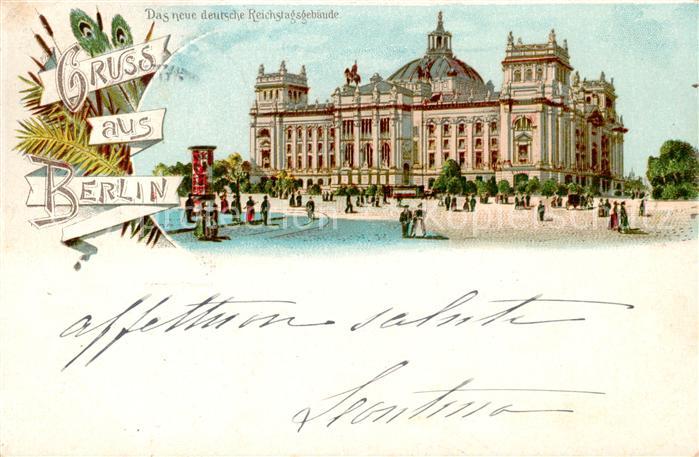 Das neue deutsche Reichstagsgebäude
GRUSS
aus
BERLIN
affettuosi saluti